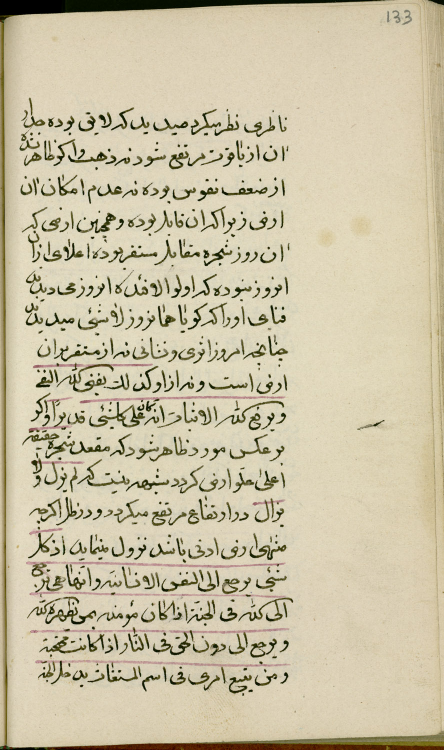 133
ناظری نظر میکرد میدید که لایق بوده جدار
ان از یاقوت مرتفع شود نه ذهب و اکر ظاهر نشده
از ضعف نفوس بوده نه عدم امکان ان
ارض زیرا که ان قابل بوده و همچنین ارضی که
ان روز شجره مقابل مستقر بوده اعلای از ان
انروز نبوده که اولو الافئده انروز می دیدند
فنای او را که کویا همانروز لا شیئ میدیدند
چنانچه امروز اثری و نه از مستقر بران
ارض است و نه از او کذلک یفنی الله النفی
و یرفع الله الاثبات انه کان علی کلشئی قدیرا و اکر
بر عکس مورد ظاهر شود که مقعد شجره حقیقه
اعلی علو ارض کردد شبهه نیست که لم یزل و لا
یزال در ارتفاع مرتفع میکردد و در ظل اکرچه
منتهی ارض ادنی باشد نزول مینماید اذ کل
شئی یرجع الی النفس الانسانیه و انها هی ترجع
الی الله فی الجنة اذا کان مؤمنه بمن یظهره الله
و یرجع الی دون الحق فی النار اذا کانت محتجبة
و من یتبع امری فی اسم